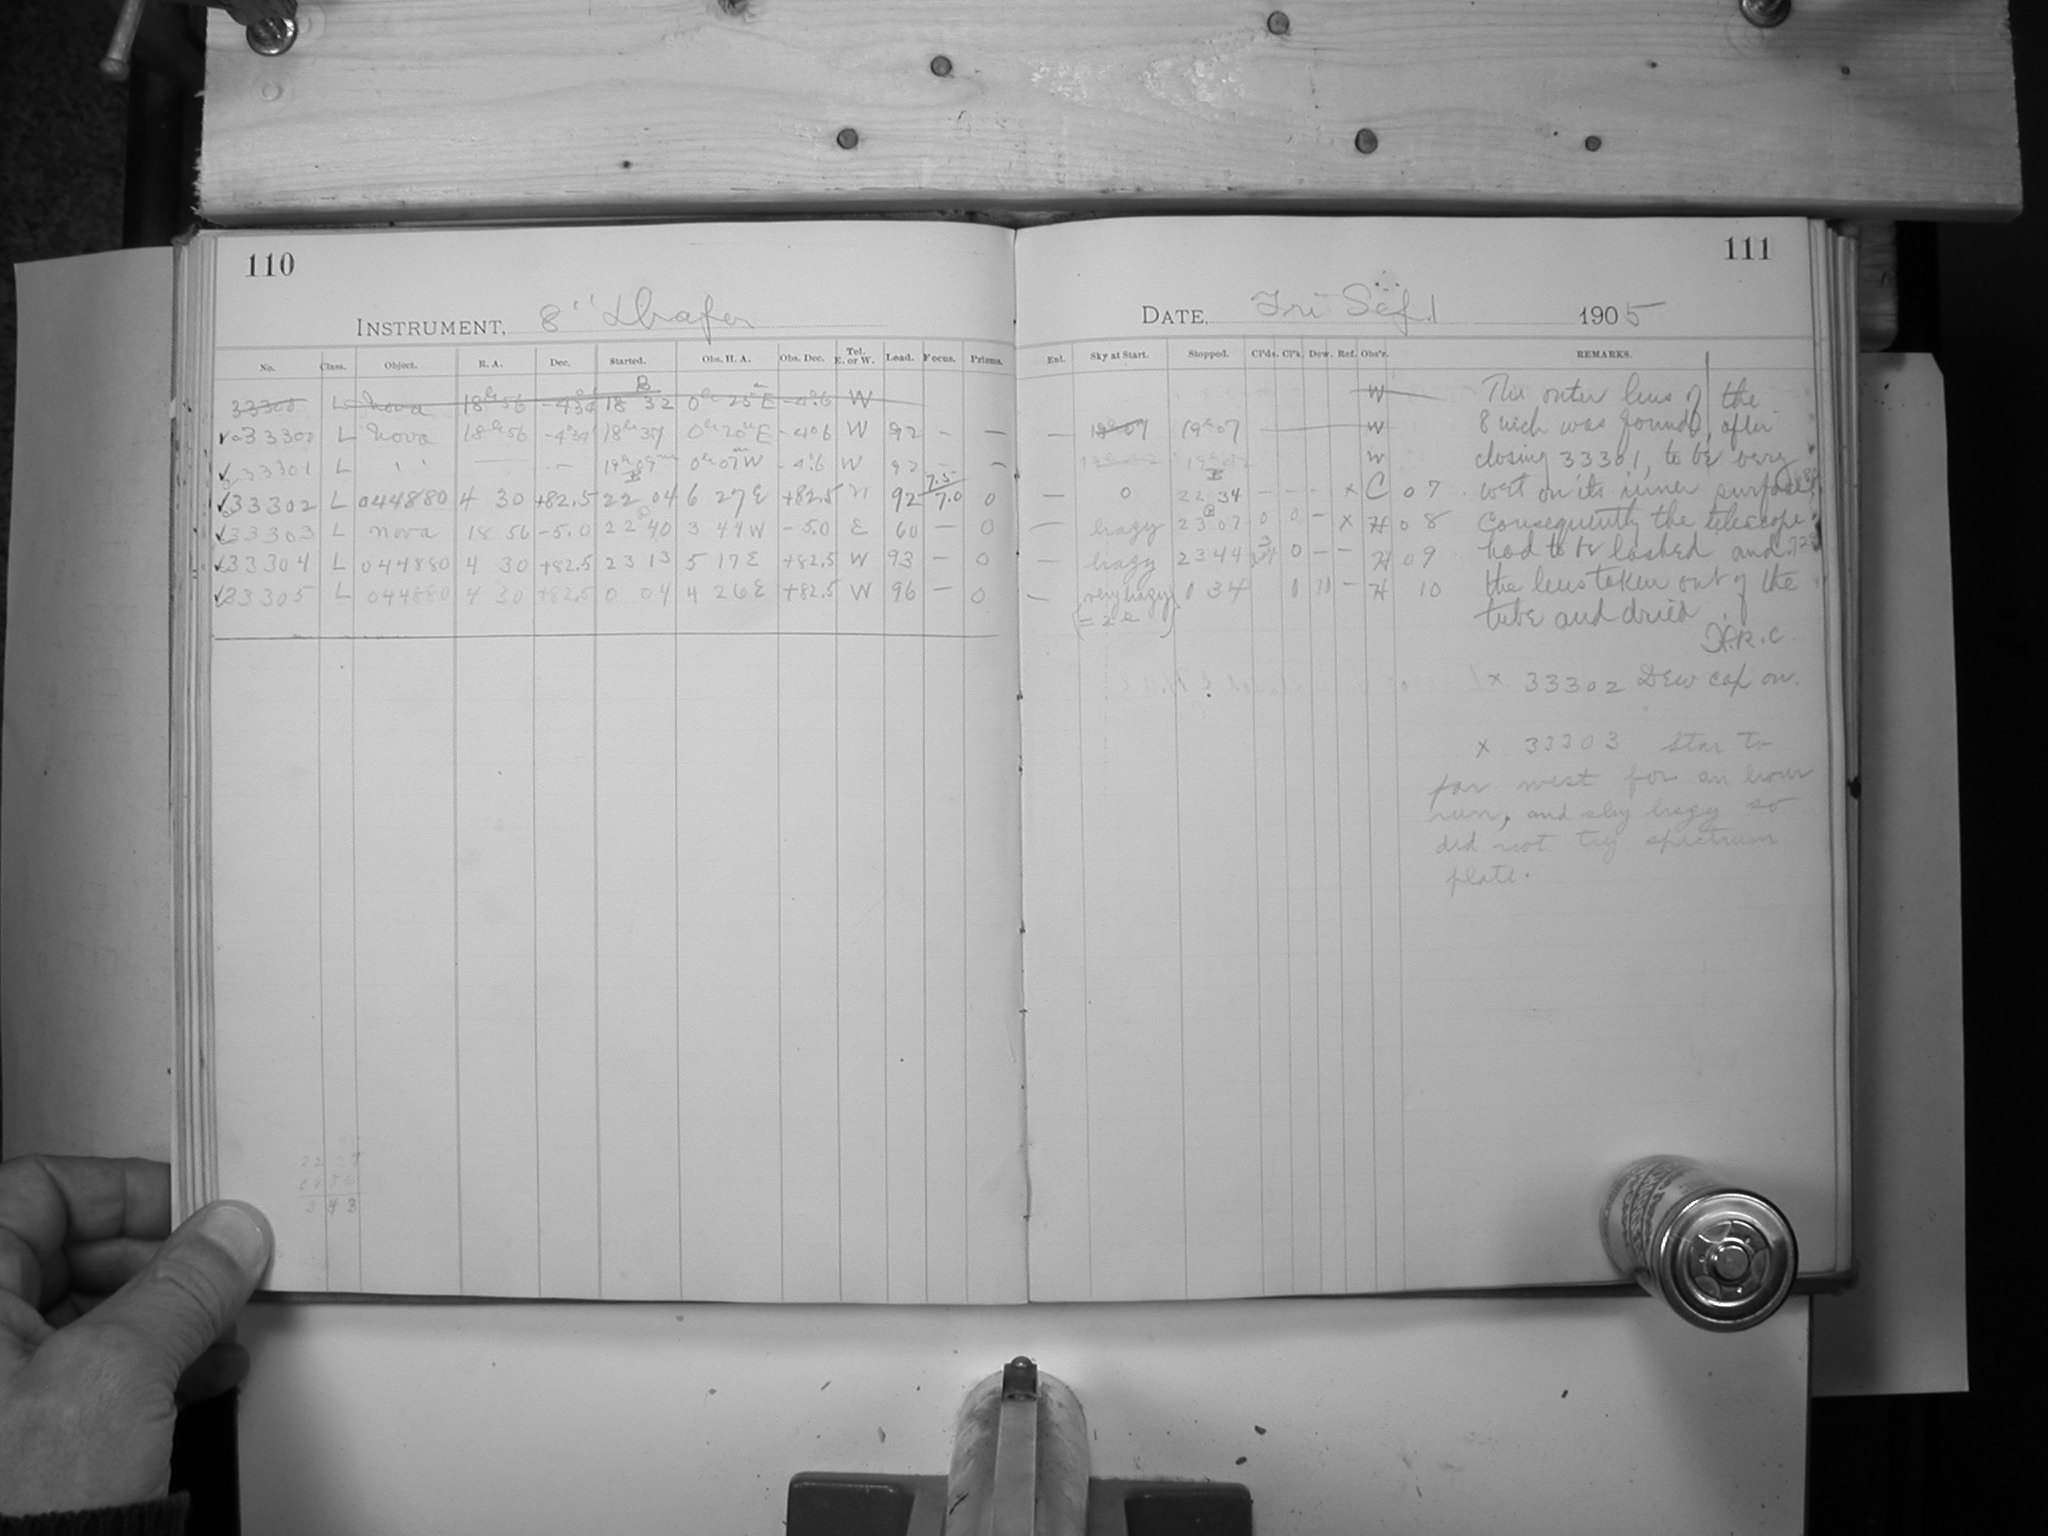 110
111
INSTRUMENT, 8" Draper
DATE, Fri Sep. 1 1905
No. Class. Object. R. A. Dec. Started. Obs. H. A. Obs. Dec. Tel. E. or W. Load. Focus. Prisms. Exl. Sky at Start. Stopped. Cl'ds. Cl'k. Dew. Ref. Obs'r. REMARKS.
33300 L Nova 18h 56 18 32 0h 25m E -4°.6 W W
33300 L Nova 18h 56 18h 37 0h 20m E -4°.6 W 92 – – – 19h 07 19h 07 W
33301 L " — – 19h 09m 0h 07m W -4°.6 W 92 – – W
33302 L 044880 4 30 +82.5 22 04 6 27 E +82.5 92 7.5 7.0 0 — 0 22 34 – – – x C 07
33303 L nova 18 56 -5.0 22 40 3 44 W -5.0 E 60 – 0 — hazy 23 07 0 0 – x H 08
33304 L 044880 4 30 +82.5 23 13 5 17 E +82.5 W 93 – 0 — hazy 23 44 0 – – H 09
33305 L 044880 4 30 +82.5 0 04 4 26 E +82.5 W 96 – 0 — very hazy 0 34 0 10 – H 10
The outer lens of the
8 inch was found, after
closing 33301, to be very
wet on its inner surface.
Consequently the telescope
had to be lashed and
the lens taken out of the
tube and dried
H.R.C.
x 33302 Dew cap on.
x 33303 star to
far west for an hour
run, and sky hazy so
did not try spectrum
plate.
3 43